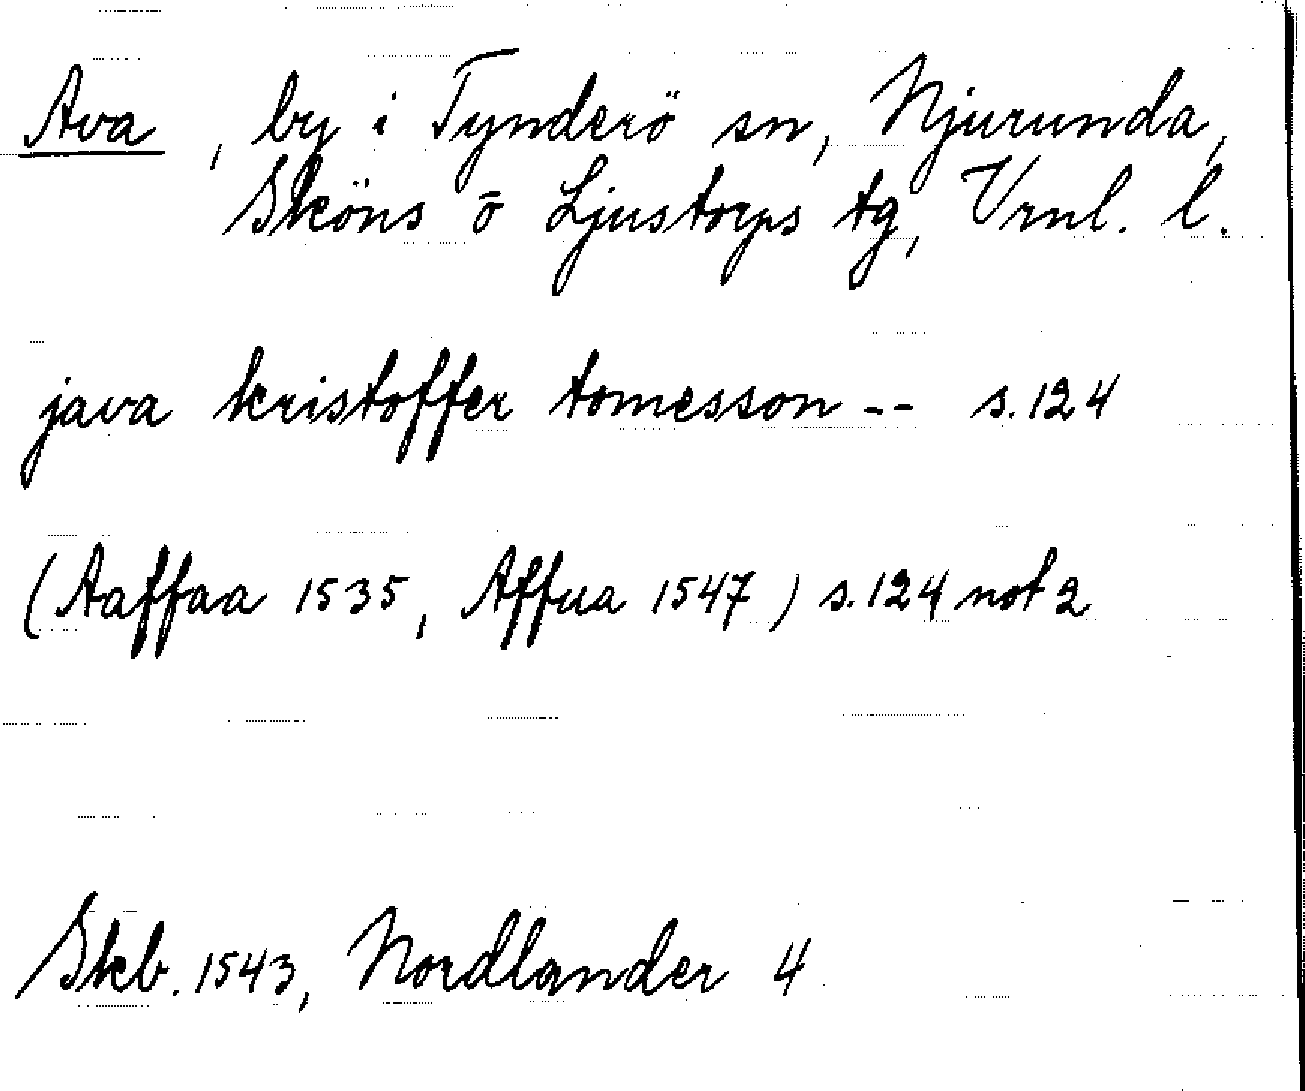 Ava, by i Tynderö sn, Njurunda,
Sköns o Ljustorps tg, Vrnl. l.
java kristoffer tomesson -- s. 124
(Aaffaa 1535, Affua 1547) s. 124 not 2
Skb. 1543, Nordlander 4